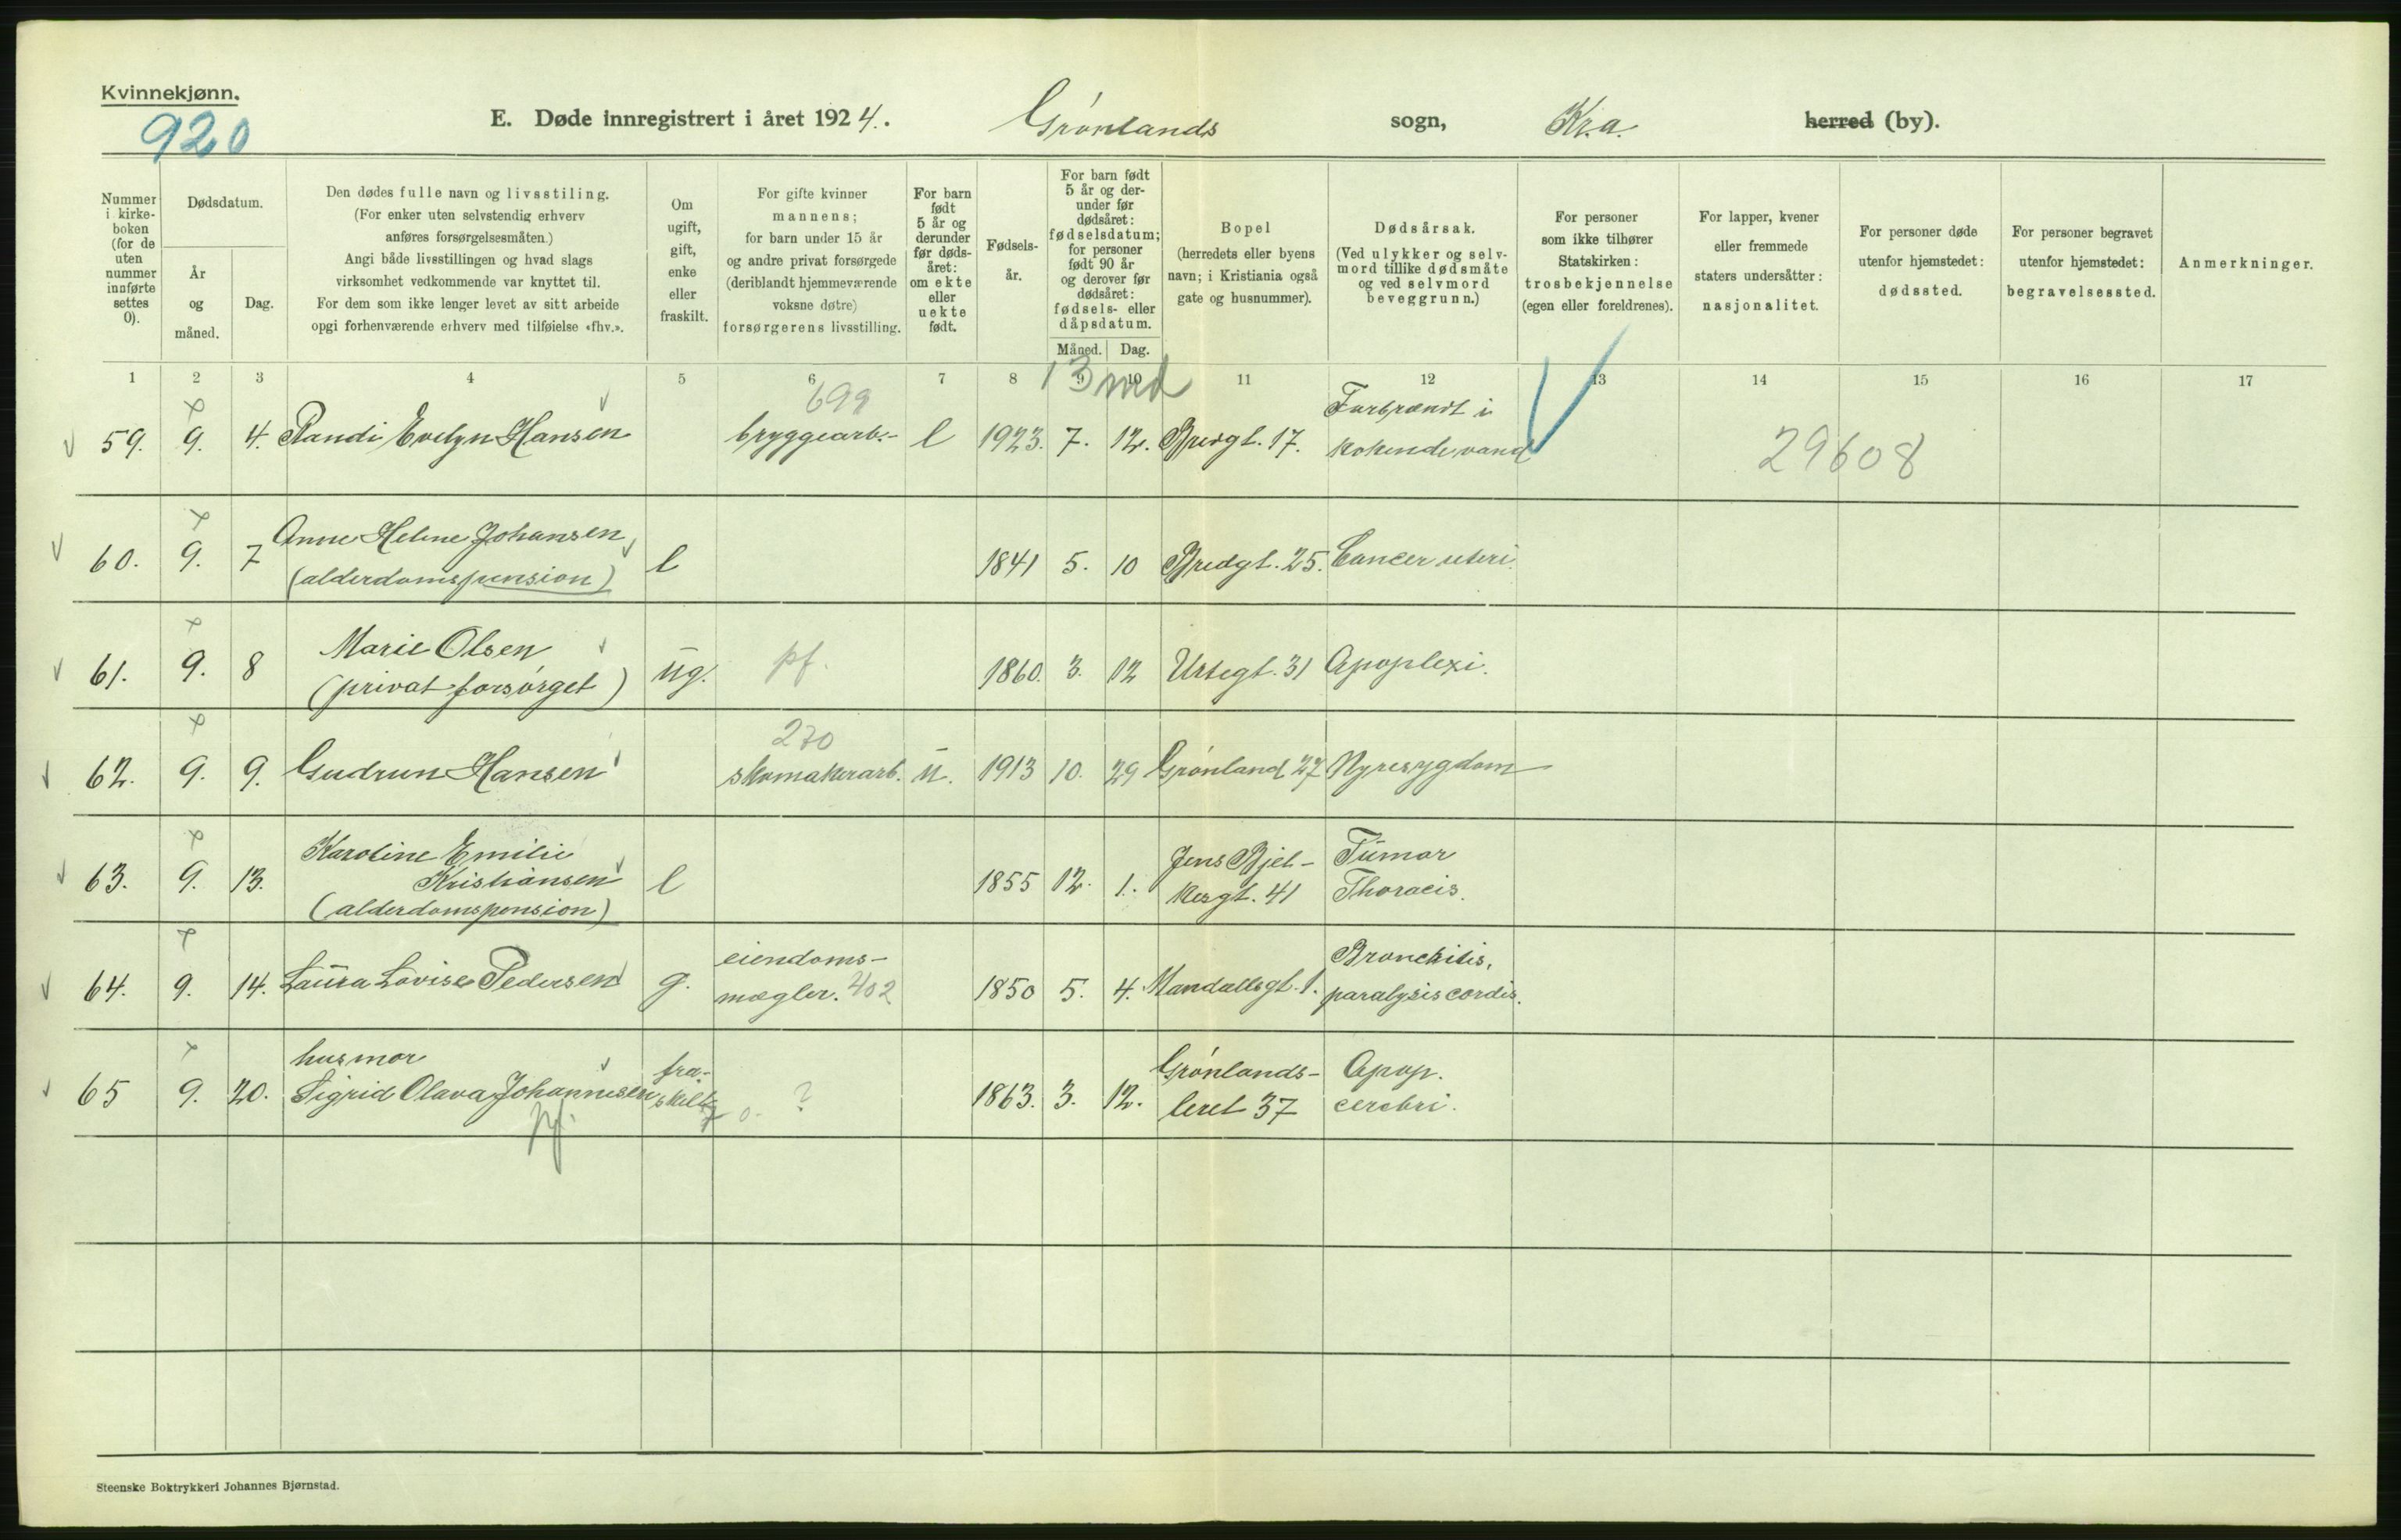 Kvinnekjønn.
920
E. Døde innregistrert i året 1924.. Grønlands sogn, Kr.a. herred (by).
Nummer i kirke- boken (for de uten nummer innførte settes 0).
Dødsdatum.
År og måned.
Dag.
Den dødes fulle navn og livsstiling.
(For enker uten selvstendig erhverv
anføres forsørgelsesmåten.)
Angi både livsstillingen og hvad slags
virksomhet vedkommende var knyttet til.
For dem som ikke lenger levet av sitt arbeide
opgi forhenværende erhverv med tilføielse «fhv.».
Om ugift, gift, enke eller fraskilt.
For gifte kvinner
mannens;
for barn under 15 år
og andre privat forsørgede
(deriblandt hjemmeværende
voksne døtre)
forsørgerens livsstilling.
For barn født 5 år og derunder før døds- året: om ekte eller uekte født.
Fødsels- år.
For barn født 5 år og der- under før dødsåret: fødselsdatum; for personer født 90 år og derover før dødsåret: fødsels- eller dåpsdatum.
Måned. Dag.
Bopel
(herredets eller byens
navn; i Kristiania også
gate og husnummer).
Dødsårsak.
(Ved ulykker og selv-
mord tillike dødsmåte
og ved selvmord
beveggrunn.)
For personer
som ikke tilhører
Statskirken:
trosbekjennelse
(egen eller foreldrenes).
For lapper, kvener
eller fremmede
staters undersåtter:
nasjonalitet.
For personer døde
utenfor hjemstedet:
dødssted.
For personer begravet
utenfor hjemstedet:
begravelsessted.
Anmerkninger.
1 2 3 4 5 6 7 8 9 10 11 12 13 14 15 16 17
13 md
699
59. 9. 4. Randi Evelyn Hansen bryggearb.- l 1923. 7. 12. Bredgt. 17. Forbrændt i
kokende vand
29608
60. 9. 7 Anne Helene Johansen
(alderdomspension) l 1841 5. 10 Bredgt. 25. Cancer uteri.
61. 9. 8 Marie Olsen
(privat forsørget) ug. pf. 1860. 3. 12 Urtegt. 31 Apoplexi.
270
62. 9. 9. Gudrun Hansen skomakerarb. u. 1913 10. 29 Grønland 27 Nyresygdom
63. 9. 13. Karoline Emilie
Kristiansen
(alderdomspension) l 1855 12. 1. Jens Bjel-
kesgt. 41 Tumor
Thoracis.
64. 9. 14. Laura Lovise Pedersen g. eiendoms-
mægler. 402 1850 5. 4. Mandallsgt. 1. Bronchitis,
paralysis cordis.
65 9. 20. husmor
Sigrid Olava Johannesen fra-
skilt o. ? 1863. 3. 12. Grønlands-
leret 37 Apop.
cerebri.
pf.
Steenske Boktrykkeri Johannes Bjørnstad.